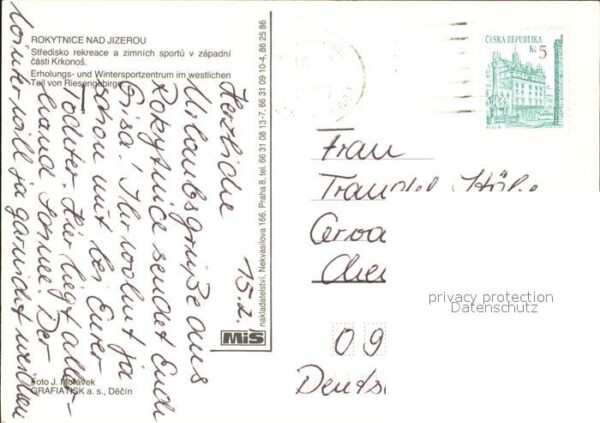 ROKYTNICE NAD JIZEROU
Středisko rekreace a zimních sportů v západní
části Krkonoš.
Erholungs- und Wintersportzentrum im westlichen
Teil von Riesengebirge.
Herzliche
Urlaubsgrüße aus
Rokytnice sendet Euch
Gisa! Ihr wolmt ja
schon mit bei Eurer
Tochter. Hier liegt aller-
hand Schnee! Der
Winter will ja garnicht weichen
15.2.
Foto J. Morávek
GRAFIATISK a. s., Děčín
MiS
nakladatelství, Nekvasilova 166, Praha 8, tel. 66 31 08 13-7, 66 31 09 10-4, 86 25 86
ČESKÁ REPUBLIKA
Kč 5
PLZEŇ
Frau
09
privacy protection
Datenschutz